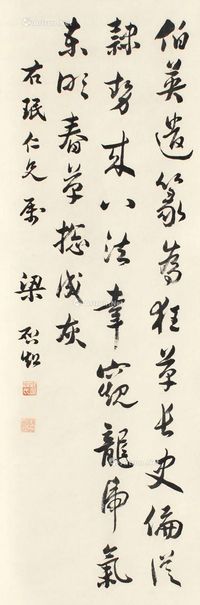 伯英遺篆為狂草長史偏從
隸勢來八法幸窺龍虎氣
春草總成灰
右珉仁兄屬 梁啟超